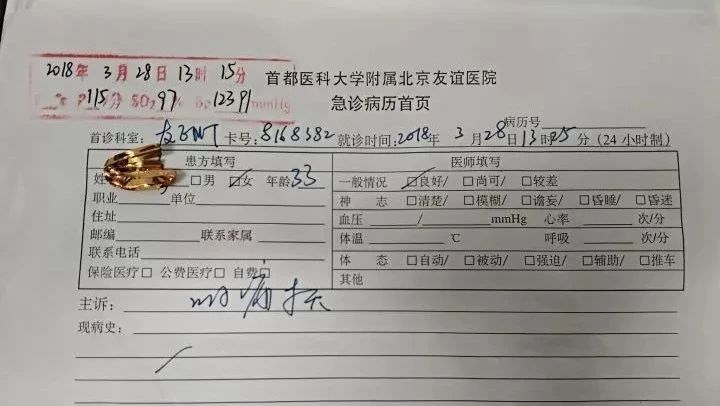 2018年 3月28日13时 15分
P115 SO2 97% Bp 123 91 mmHg
首都医科大学附属北京友谊医院
急诊病历首页
病历号
首诊科室： 卡号：8168382 就诊时间：2018年 3月28日13时25分（24小时制）
患方填写 医师填写
姓 □男 □女 年龄33 一般情况 □良好/ □尚可/ □较差
职业 单位 神 志 □清楚/ □模糊/ □谵妄/ □昏睡/ □昏迷
住址 血压 / mmHg 心率 次/分
邮编 联系家属 体温 ℃ 呼吸 次/分
联系电话 体 态 □自动/ □被动/ □强迫/ □辅助/ □推车
保险医疗□ 公费医疗□ 自费□ 其他
主诉：
现病史：